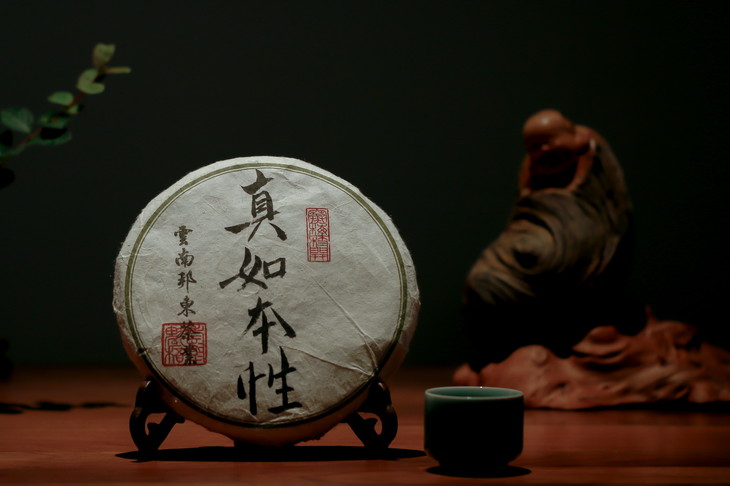 真如本性
雲南邦東茶業